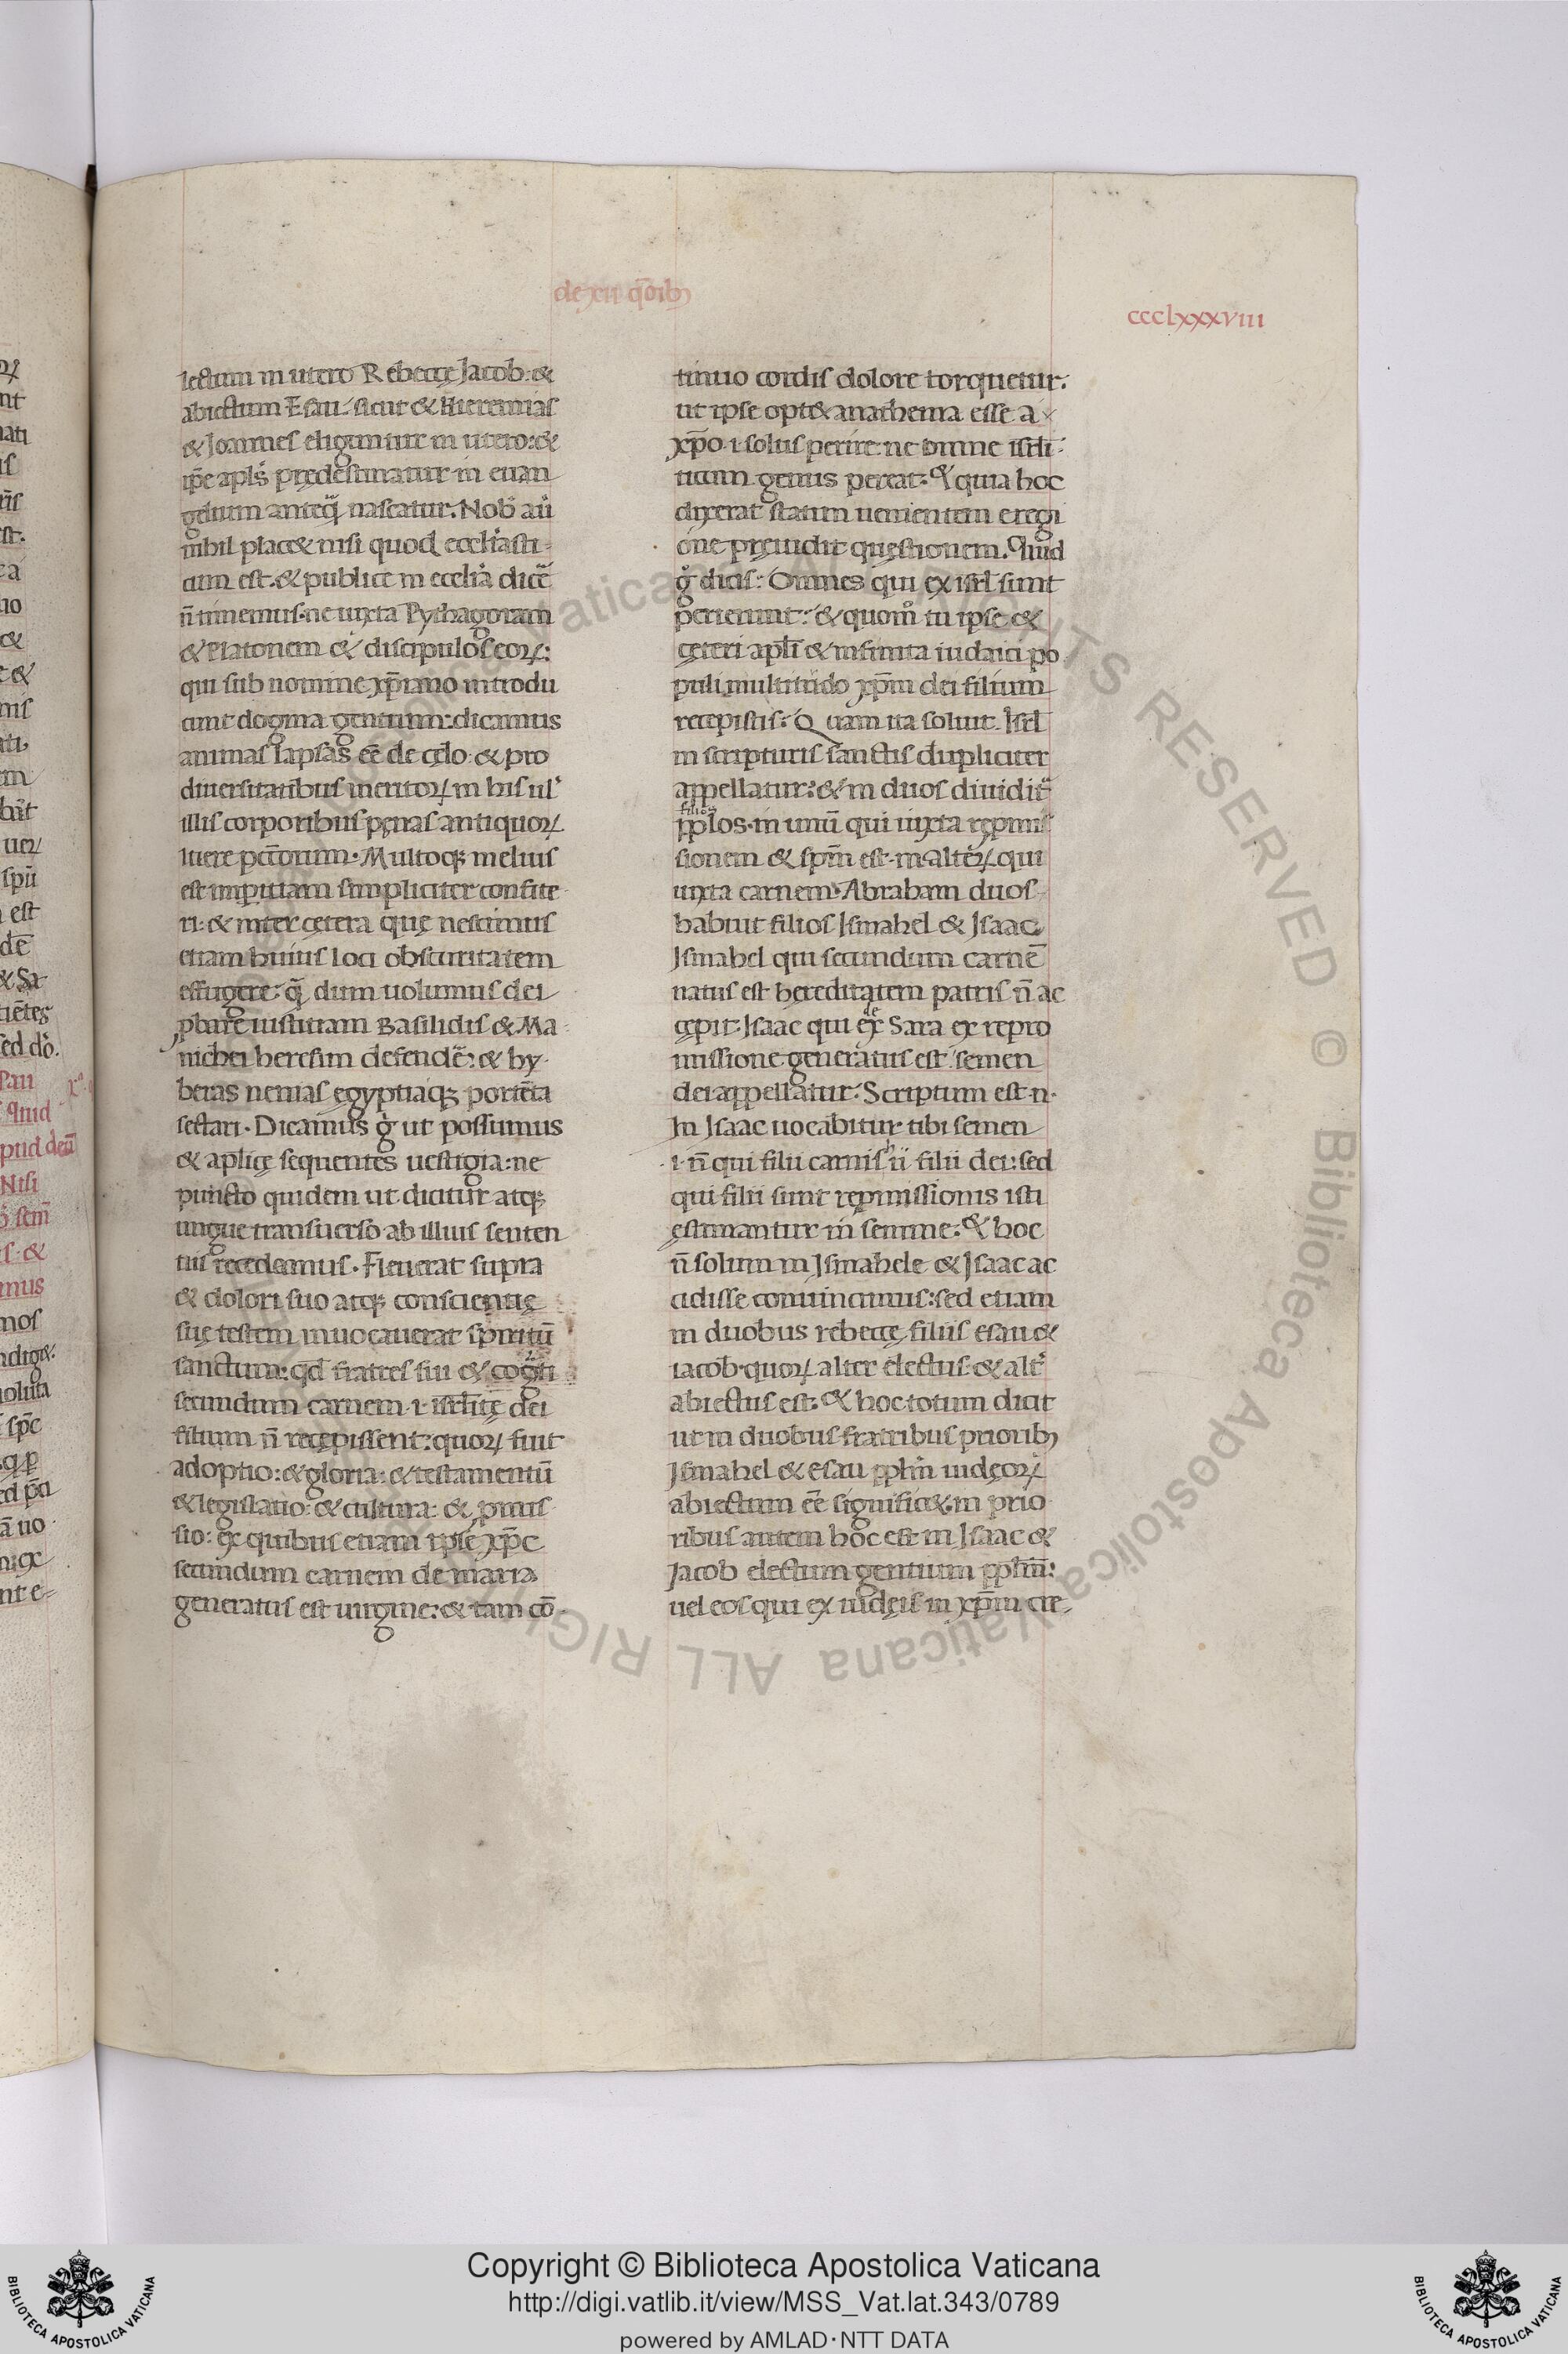 de xii q̄oib;
ccclxxxviii
lectum in utero Rebecçę Jacob: &
abiectum Esau: sicut & Hieremias
& Joannes eliguntur in utero: &
ip̄e apl's prędestinatur in euan
gelium anteq̃ nascatur. Nob' aũ
nihil plac& nisi quod eccl'iasti-
cum est. & publice in eccl'ia dicẽ
ñ timemus. ne iuxta Pythagoram
& Platonem & discipulos eoꝝ:
qui sub nomine xp̄iano introdu
cunt dogma gentium: dicamus
animas lapsas eē de cęlo: & pro
diuersitatibus meritoꝝ in his ul'
illis corporibus pęnas antiquoꝝ
luere pctōrum. Multoq; melius
est imperitiam simpliciter confite
ri: & inter cętera quę nescimus
etiam huius loci obscuritatem
effugere: q̃ dum uolumus dei
ꝓbare iustitiam Basilidis & Ma-
nichei heresim defendẽ: & hy-
beras nenias ęgyptiaq; portēta
sectari. Dicamus g̊ ut possumus
& aplicę sequentes uestigia: ne
puncto quidem ut dicitur atq;
ungue transuerso ab illius senten
tiis recedamus. Fleuerat supra
& dolori suo atq; conscientię
suę testem inuocauerat spiritū
sanctum: qd̄ fratres sui & cog̃ti
secundum carnem .i. isrl'itę dei
filium ñ recępissent: quoꝝ fuit
adoptio: & gloria: & testamentū
& legislatio: & cultura: & ꝓmis-
sio: ex quibus etiam ipse xp̄c
secundum carnem de maria
generatus est uirgine: & tam cō-
tinuo cordis dolore torquetur:
ut ipse opt& anathema esse a
xp̄o .i. solus perire: ne omne isrl'i-
ticum genus pereat. & quia hoc
dixerat statim uenientem e regi
one pręuidit quęstionem. Quid
g̊ dicis: Omnes qui ex isrl' sunt
perierunt: & quom̊ tu ipse &
cęteri apl'i & infinita iudaici po
puli multitudo xp̄m dei filium
recepistis: Quam ita soluit. Isrl'
in scripturis sanctis dupliciter
appellatur: & in duos diuidit̃
filios
pp̄los. in unū qui iuxta repmis
sionem & spm̄ est. in alteꝝ. qui
iuxta carnem. Abraham duos
habuit filios Ismahel & Isaac.
Ismahel qui secundum carnē
natus est hereditatem patris ñ ac
cępit. Isaac qui de ex Sara ex repro
missione generatus est: semen
dei appellatur. Scriptum est .n.
In Isaac uocabitur tibi semen
.i. ñ qui filii carnis hii filii dei: sed
qui filii sunt repmissionis isti
ęstimantur in semine: & hoc
ñ solum in Ismahele & Isaac ac
cidisse conuincimus: sed etiam
in duobus rebecçę filiis esau &
iacob. quoꝝ alter electus. & alt̃
abiectus est. & hoc totum dicit
ut in duobus fratribus priorib;
Ismahel & Esau pp̄lm̄ iudęoꝝ
abiectum eē signific&. in prio
ribus autem hoc est in Isaac &
Jacob electum gentium pp̄lm̄:
uel eos qui ex iudęis in xp̄m cre-
Copyright © Biblioteca Apostolica Vaticana
http://digi.vatlib.it/view/MSS_Vat.lat.343/0789
powered by AMLAD·NTT DATA
BIBLIOTECA APOSTOLICA VATICANA
BIBLIOTECA APOSTOLICA VATICANA